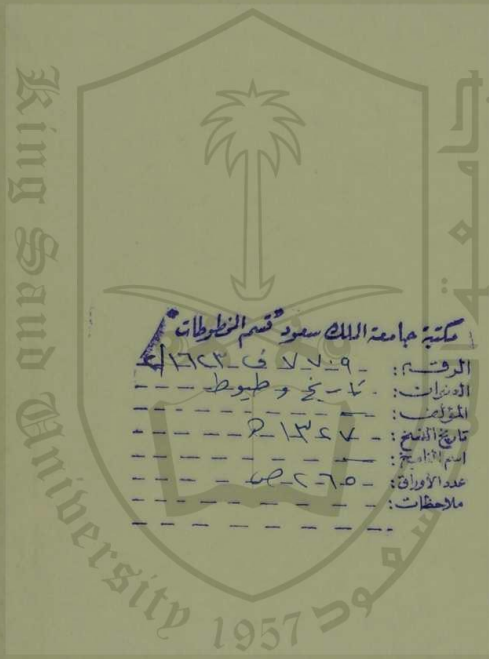 King Saud University
1957
جامعة
سعود
مكتبة جامعة الملك سعود "قسم المخطوطات"
الرقم: ٧٧٠٩ ف ١٦٢٣/
العنوان: تاريخ و
المؤلف:
تاريخ النسخ: ١٣٤٧ هـ
اسم الناسخ:
عدد الأوراق: ٢٦٥ ص
ملاحظات: